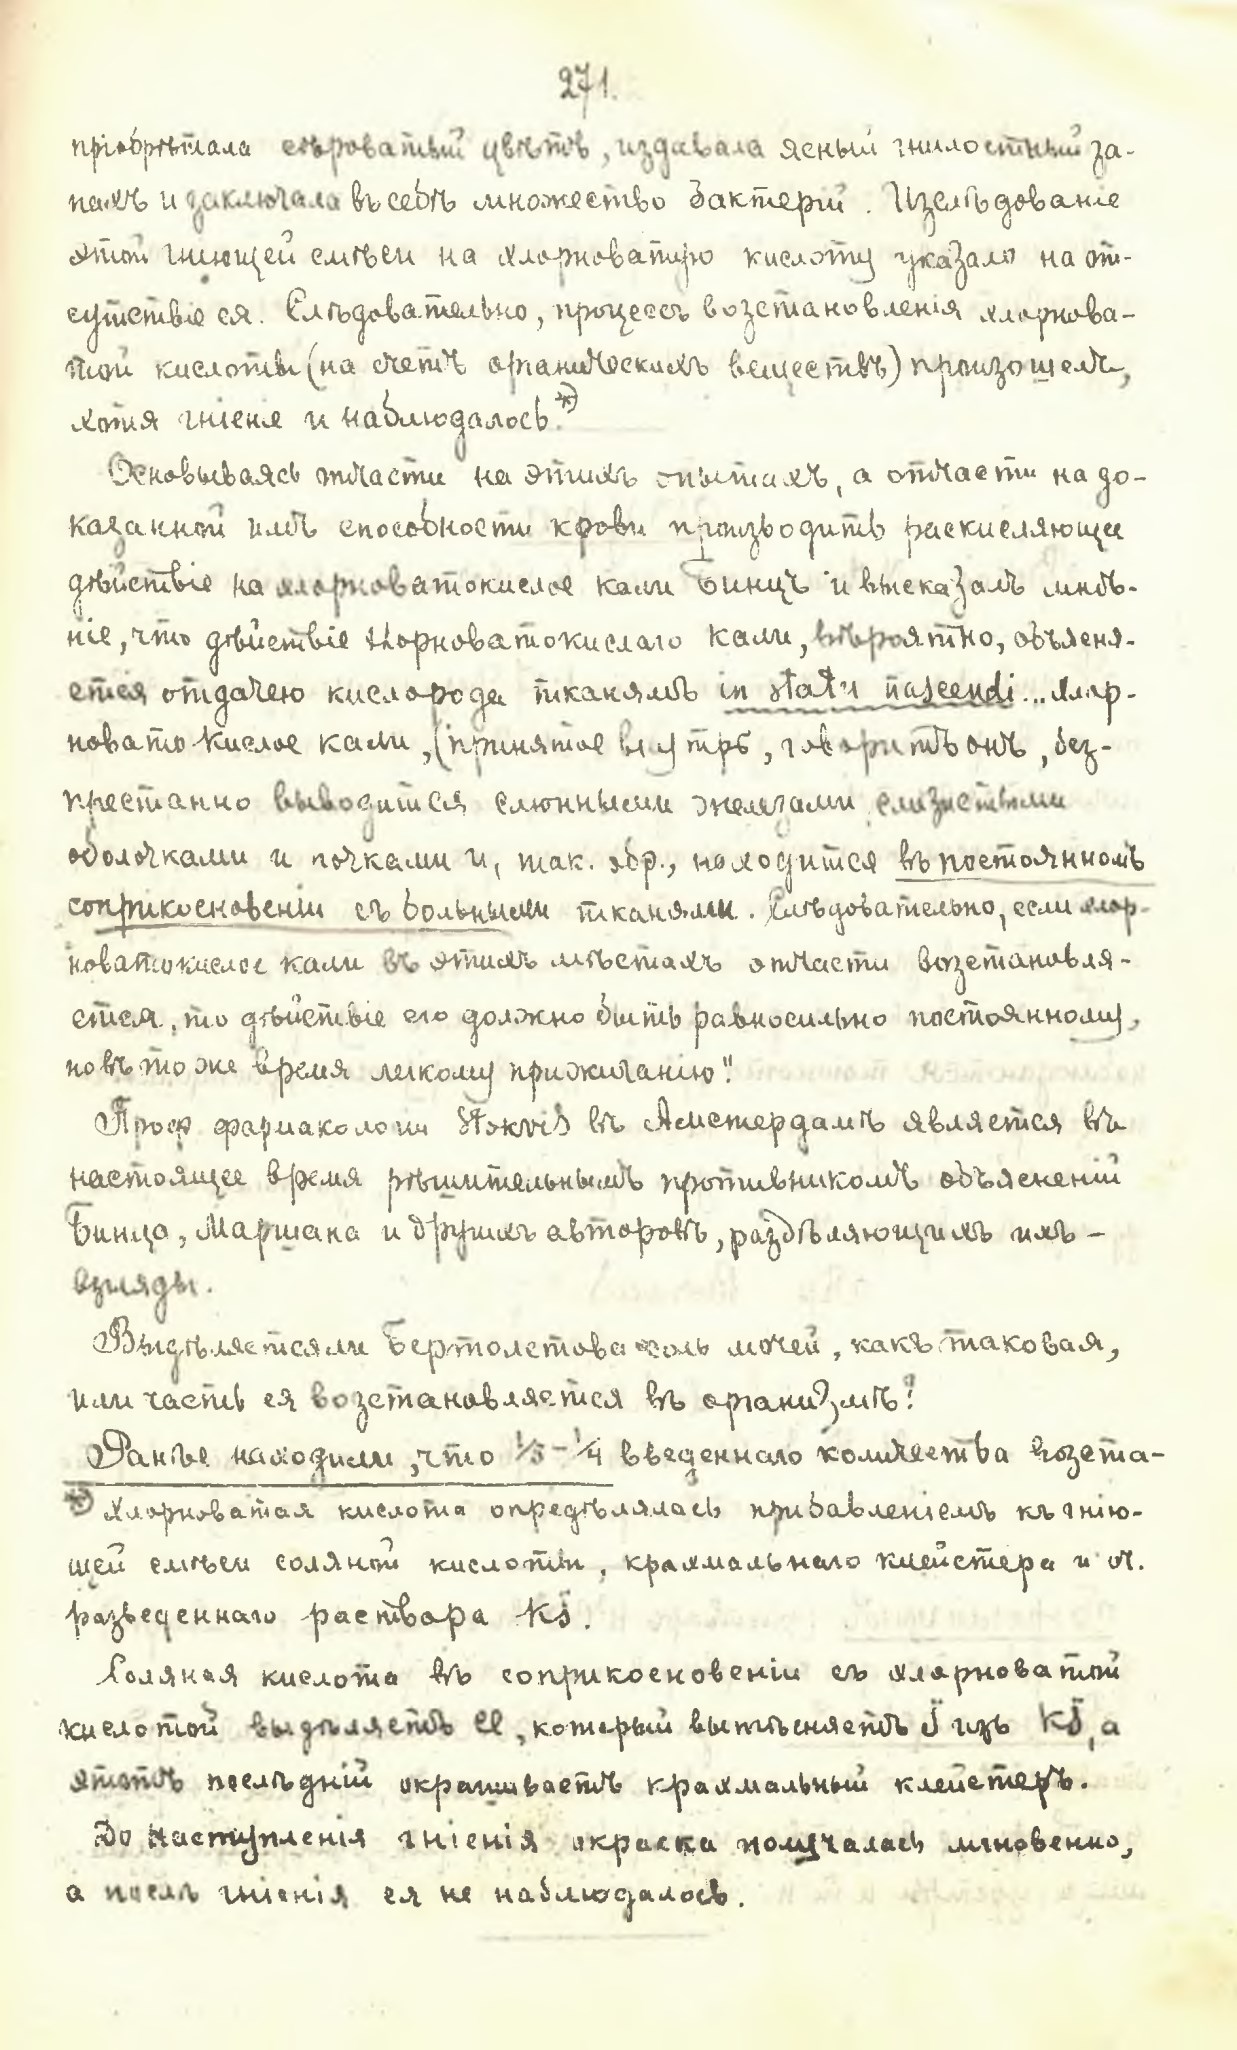 271.
пріобрѣтала сѣроватый цвѣтъ, издавала ясный гнилостный за-
пахъ и заключала въ себѣ множество бактерій. Изслѣдованіе
этой гніющей смѣси на хлорноватую кислоту указало на от-
сутствіе ея. Слѣдовательно, процессъ возстановленія хлорнова-
той кислоты (на счетъ органическихъ веществъ) произошелъ,
хотя гніеніе и наблюдалось.*)
Основываясь отчасти на этихъ опытахъ, а отчасти на до-
казанной имъ способности крови производить раскисляющее
дѣйствіе на хлорноватокислое кали Бинцъ и высказалъ мнѣ-
ніе, что дѣйствіе хлорноватокислаго кали, вѣроятно, объясня-
ется отдачею кислорода тканямъ in statu nascendi... „Хлор-
новатокислое кали, (принятое внутрь, говоритъ онъ, без-
престанно выводится слюнными железами слизистыми
оболочками и почками и, так. обр., находится въ постоянномъ
соприкосновеніи съ больными тканями. Слѣдовательно, если хлор-
новатокислое кали въ этихъ мѣстахъ отчасти возстановля-
ется, то дѣйствіе его должно быть равносильно постоянному,
но въ тоже время легкому прижиганію".
Проф фармакологіи Stokvis въ Амстердамѣ является въ
настоящее время рѣшительнымъ противникомъ объясненій
Бинца, Маршана и другихъ авторовъ, раздѣляющихъ ихъ –
взгляды.
Выдѣляется ли Бертолетова соль мочей, какъ таковая,
или часть ея возстановляется въ организмѣ?
Ранѣе находили, что 1/3 – 1/4 введеннаго количества возста-
*) Хлорноватая кислота опредѣлялась прибавленіемъ къ гнію-
щей смѣси соляной кислоты, крахмальнаго клейстера и оч.
разведеннаго раствора KJ.
Соляная кислота въ соприкосновеніи съ хлорноватой
кислотой выдѣляетъ Cl, который вытѣсняетъ J изъ KJ, а
этотъ послѣдній окрашиваетъ крахмальный клейстеръ.
До наступленія гніенія окраска получалась мгновенно,
а послѣ гніенія ея не наблюдалось.